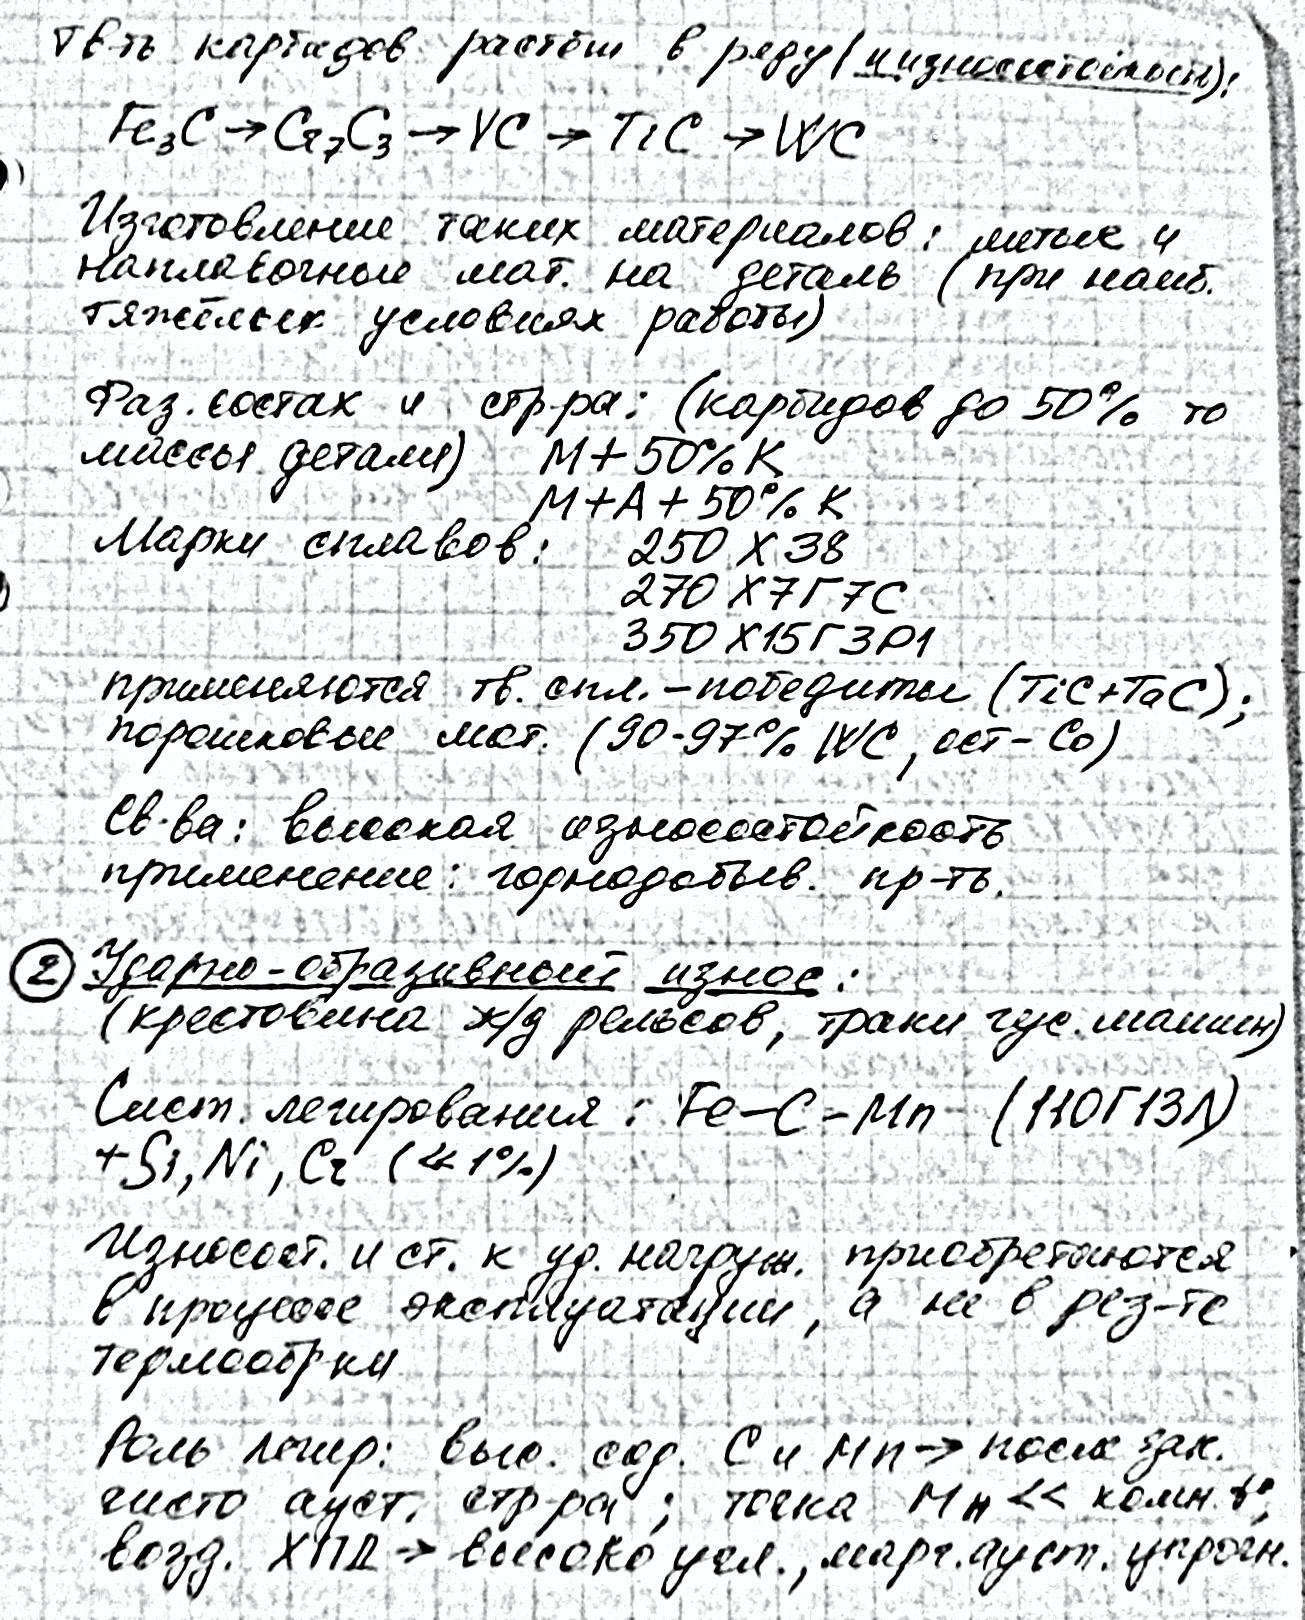 Тв-ть карбидов растёт в ряду (и износостойкость):
Fe₃C → Cr₇C₃ → VC → TiC → WC
Изготовление таких материалов: литые и
наплавочные мат. на деталь (при наиб.
тяжёлых условиях работы)
Фаз. состав и стр-ра: (карбидов до 50% то
массы детали) М + 50% К
М + А + 50% К
Марки сплавов: 250Х38
270Х7Г7С
350Х15Г3Р1
применяются тв. спл. - победиты (TiC+TaC);
порошковые мат. (90-97% WC, ост - Co)
Св-ва: высокая износостойкость
применение: горнодобыв. пр-ть.
② Ударно-абразивный износ:
(крестовина ж/д рельсов, траки гус. машин)
Сист. легирования: Fe-C-Mn (110Г13Л)
+Si, Ni, Cr (≪1%)
Износост. и ст. к уд. нагруж. приобретаются
в процессе эксплуатации, а не в рез-те
термообр-ки
Роль легир: выс. сод. C и Mn → после зак.
чисто ауст. стр-ра; точка Мн << комн. t°,
возд. ХПД → высокоугл., марг. ауст. упрочн.